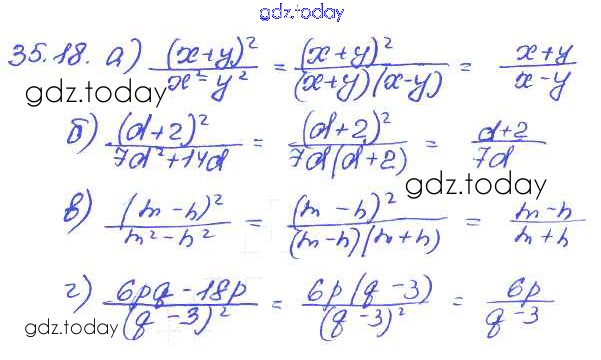 gdz.today
35.18. а) (x+y)²/(x²-y²) = (x+y)²/((x+y)(x-y)) = (x+y)/(x-y)
gdz.today
б) (d+2)²/(7d²+14d) = (d+2)²/(7d(d+2)) = (d+2)/(7d)
gdz.today
в) (m-n)²/(m²-n²) = (m-n)²/((m-n)(m+n)) = (m-n)/(m+n)
г) (6pq-18p)/(q-3)² = 6p(q-3)/(q-3)² = 6p/(q-3)
gdz.today
gdz.today